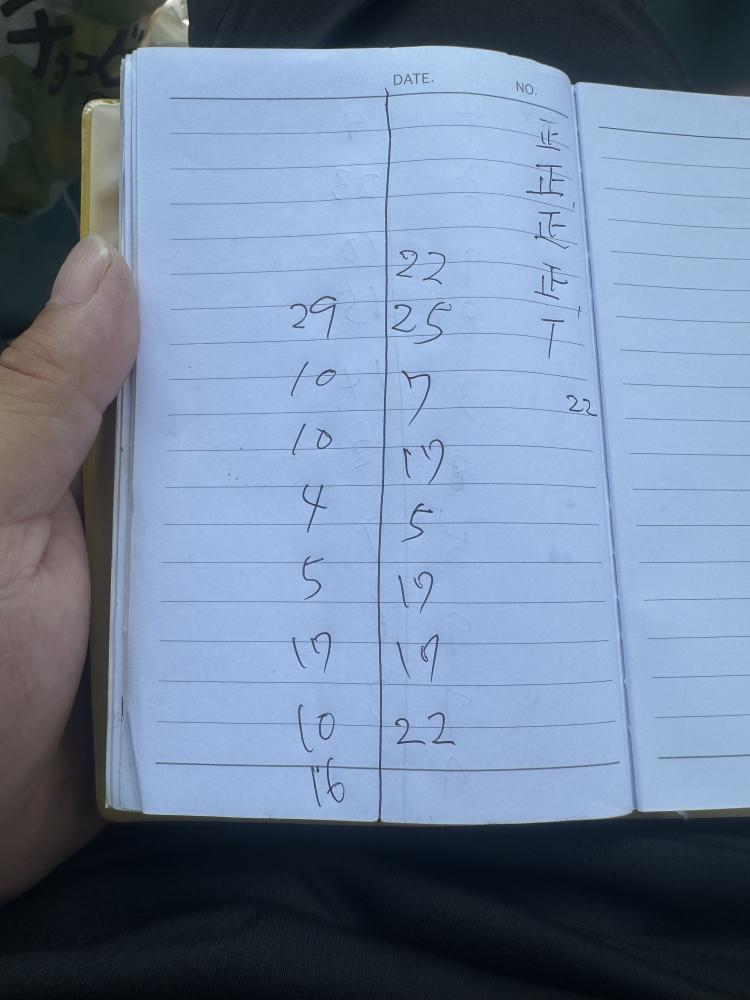 DATE. NO.
正
正
正
22 正
29 25 丅
10 7 22
10 17
4 5
5 17
17 17
10 22
16